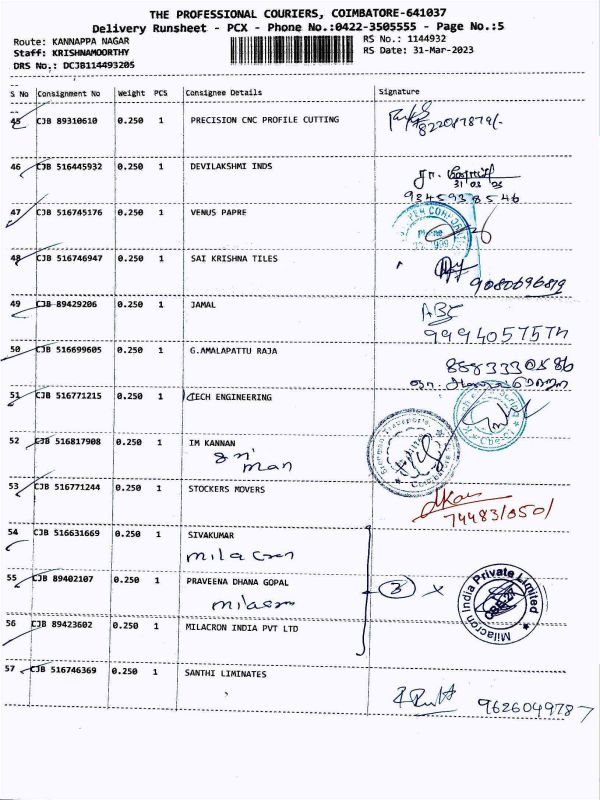 THE PROFESSIONAL COURIERS, COIMBATORE-641037
Delivery Runsheet - PCX - Phone No.:0422-3505555 - Page No.:5
Route: KANNAPPA NAGAR
RS No.: 1144932
Staff: KRISHNAMOORTHY
RS Date: 31-Mar-2023
DRS No.: DCJB114493205
S No Consignment No Weight PCS Consignee Details Signature
45 CJB 89310610 0.250 1 PRECISION CNC PROFILE CUTTING
46 CJB 516445932 0.250 1 DEVILAKSHMI INDS
31 03 23
9345938546
47 CJB 516745176 0.250 1 VENUS PAPRE
48 CJB 516746947 0.250 1 SAI KRISHNA TILES
9080696819
49 CJB 89429206 0.250 1 JAMAL
50 CJB 516699605 0.250 1 G.AMALAPATTU RAJA
51 CJB 516771215 0.250 1 CTECH ENGINEERING
52 CJB 516817908 0.250 1 IM KANNAN
man
53 CJB 516771244 0.250 1 STOCKERS MOVERS
54 CJB 516631669 0.250 1 SIVAKUMAR
milacron
55 CJB 89402107 0.250 1 PRAVEENA DHANA GOPAL
milacron
3 x
Milacron India Private Limited
56 CJB 89423602 0.250 1 MILACRON INDIA PVT LTD
57 CJB 516746369 0.250 1 SANTHI LIMINATES
9626049787